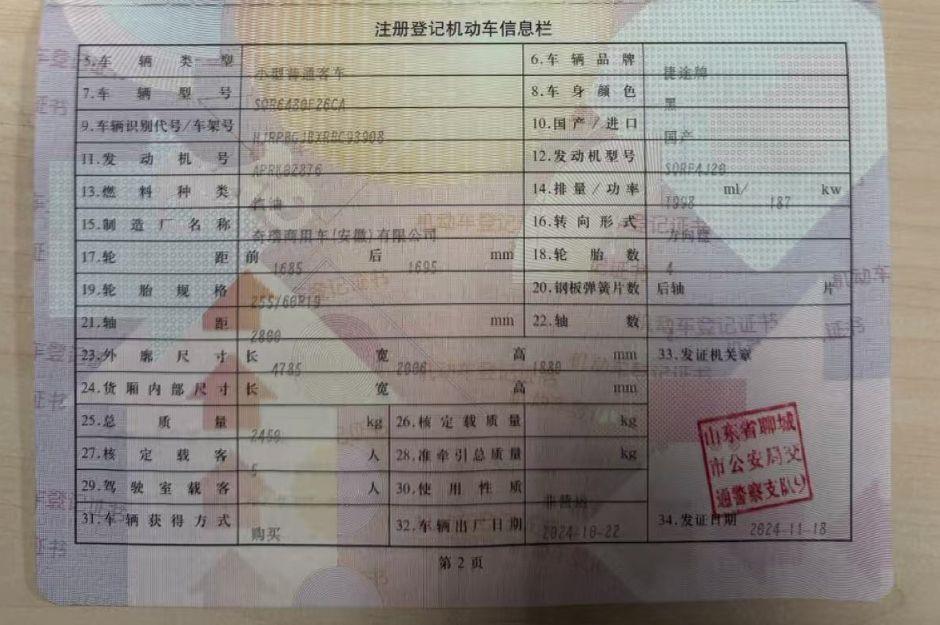 注册登记机动车信息栏
5.车辆类型 小型普通客车 6.车辆品牌 捷途牌
7.车辆型号 SQR6480E26CA 8.车身颜色 黑
9.车辆识别代号/车架号 10.国产/进口 国产
11.发动机号 12.发动机型号 SQRF4J20
13.燃料种类 汽油 14.排量/功率 1998 ml/ 187 kw
15.制造厂名称 奇瑞商用车(安徽)有限公司 16.转向形式 方向盘
17.轮距 前 1685 后 1695 mm 18.轮胎数 4
19.轮胎规格 255/60R19 20.钢板弹簧片数 后轴 片
21.轴距 2800 mm 22.轴数
23.外廓尺寸 长 4785 宽 2006 高 1880 mm 33.发证机关章
24.货厢内部尺寸 长 宽 高 mm
25.总质量 2450 kg 26.核定载质量 kg
27.核定载客 5 人 28.准牵引总质量 kg
29.驾驶室载客 人 30.使用性质 非营运
31.车辆获得方式 购买 32.车辆出厂日期 2024-10-22 34.发证日期 2024-11-18
山东省聊城
市公安局交
通警察支队
第2页